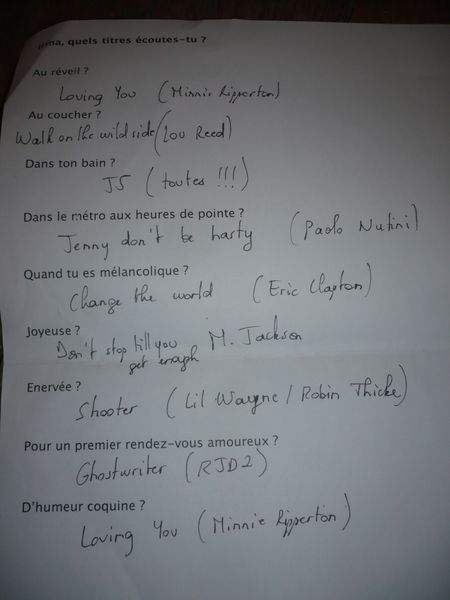 ma, quels titres écoutes-tu ?
Au réveil ?
Loving You (Minnie Ripperton)
Au coucher ?
Walk on the wild side (Lou Reed)
Dans ton bain ?
J5 (toutes !!!)
Dans le métro aux heures de pointe ?
Jenny don't be hasty (Paolo Nutini)
Quand tu es mélancolique ?
Change the world (Eric Clapton)
Joyeuse ?
Don't stop till you M. Jackson
get enough
Enervée ?
Shooter (Lil Wayne / Robin Thicke)
Pour un premier rendez-vous amoureux ?
Ghostwriter (RJD2)
D'humeur coquine ?
Loving You (Minnie Ripperton)